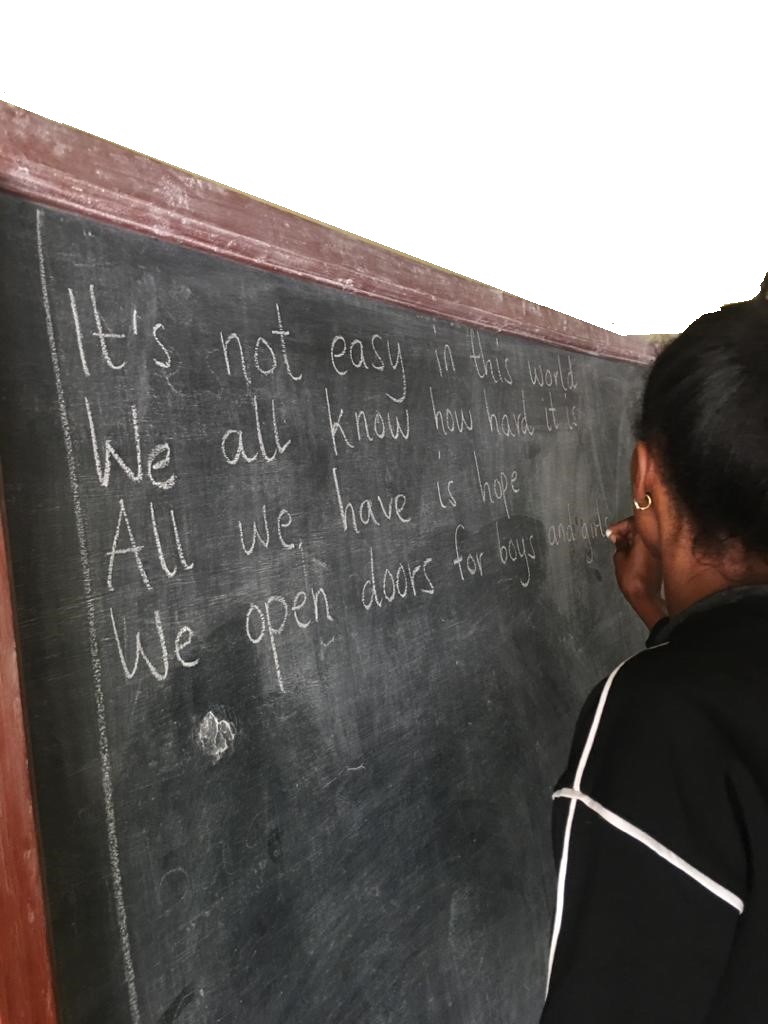 It's not easy in this world
We all know how hard it is
All we have is hope
We open doors for boys and girls